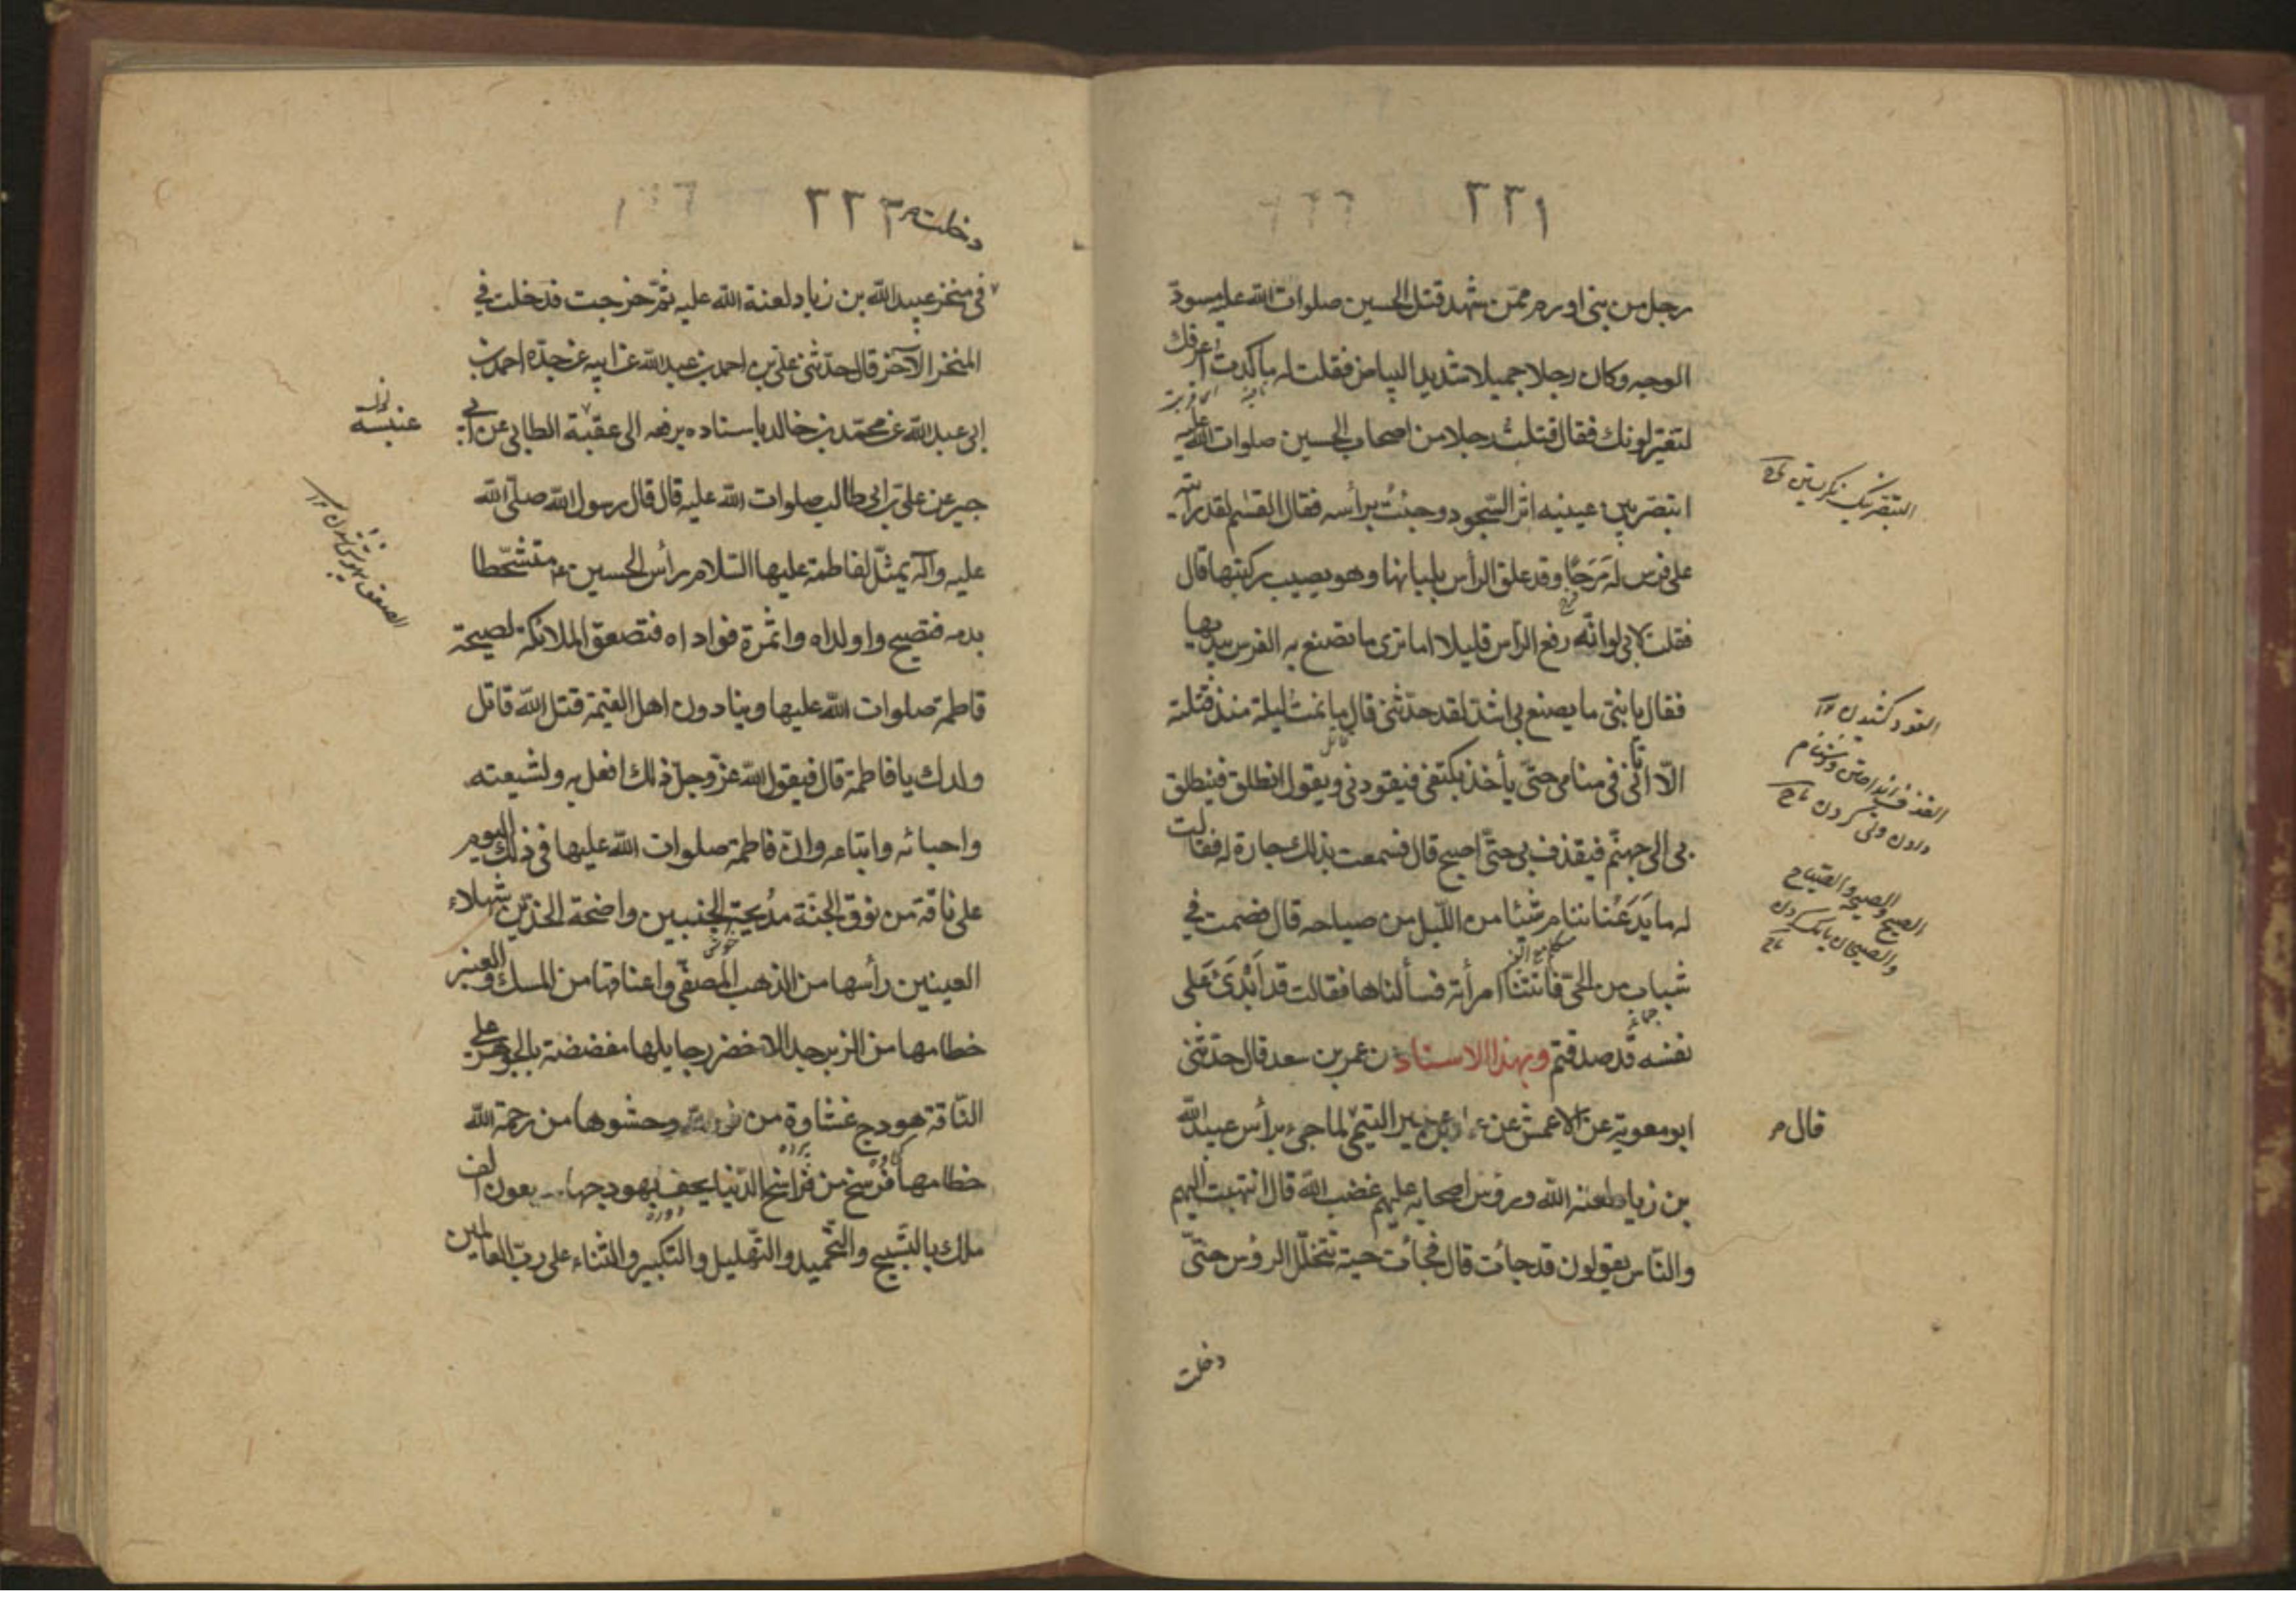 ٢٢١
رجل من بنى اورم ممّن شهد قتل الحسين صلوات الله عليه مسودّ
الوجه وكان رجلا جميلا شديد البياض فقلت له ما كدت اعرفك
لتغيّر لونك فقال قتلت رجلا من اصحاب الحسين صلوات الله عليه
ابتصر بين عينيه اثر السّجود وجئت برأسه فقال القسم لقد رأيته
على فرس له مَرَحًا وقد علق الرأس بلبانها وهو يصيب ركبتها قال
فقلت لابى لو انّه رفع الرّأس قليلا اما ترى ما تصنع به الفرس بيديها
فقال يا بنىّ ما يصنع بى اشدّ لقد حدّثنى قال ما نمت ليلة منذ قتلته
الّا اتانى فى منامى حتّى يأخذ بكتفى فيقودنى ويقول انطلق فينطلق
بى الى جهنّم فيقذف بى حتّى اصبح قال فسمعت بذلك جارة له فقالت
له ما يَدَعُنا ننام شيئا من اللّيل من صياحه قال فقمت فى
شباب من الحىّ فاتتنا امرأته فسألناها فقالت قد اَبْدَىٰ عَلى
نفسه قد صدقتم وبهذا الاسناد عن عمر بن سعد قال حدّثنى
ابو معوية عن الاعمش عن عمار بن عمير التيمّى لما جىء برأس عبيد الله
بن زياد لعنه الله ورؤس اصحابه عليهم غضب الله قال انتهيت اليهم
والنّاس يقولون قد جاءت قال فجاءت حية تتخلّل الرؤس حتّى
دخلت
القود كشيدن
والصيحان بانك كردن
قال م
٢٢٢
دخلت م
فى منخر عبيد الله بن زياد لعنة الله عليه ثمّ خرجت فدخلت فى
المنخر الآخر قال حدّثنى علىّ بن احمد بن عبد الله عن ابيه عن جدّه احمد بن
ابى عبد الله عن محمّد بن خالد باسناده يرفعه الى عقبة الطائى عن ابى
جبر عن علىّ بن ابى طالب صلوات الله عليه قال قال رسول الله صلّى الله
عليه وآله يمثّل لفاطمة عليها السّلام رأس الحسين ع متشحّطا
بدمه فتصيح وا ولداه وا ثمرة فواداه فتصعق الملائكة لصيحة
فاطمة صلوات الله عليها وينادون اهل القيمة قتل الله قاتل
ولدك يا فاطمة قال فيقول الله عزّ وجلّ ذلك افعل به ولشيعته
واحبائه واتباعه وانّ فاطمة صلوات الله عليها فى ذلك اليوم
على ناقة من نوق الجنّة مدبجة الجنبين واضحة الخدّين شهلاء
العينين رأسها من الذهب المصفّى واعناقها من المسك والعنبر
خطامها من الزبرجد الاخضر رحايلها مفضضة بالجوهر على
النّاقة هودج غشاوة من نور الله وحشوها من رحمة الله
خطامها فرسخ من فراسخ الدّنيا يحف بهودجها سبعون الف
ملك بالتّسبيح والتّحميد والتّهليل والتّكبير والثّناء على ربّ العالمين
عنبسه